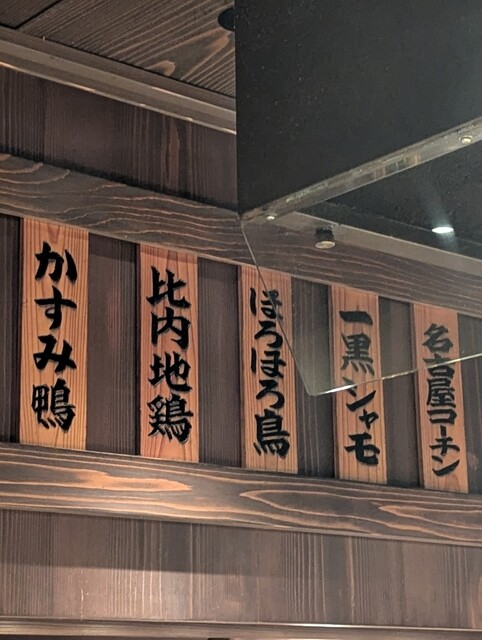 かすみ鴨
比内地鶏
ほろほろ鳥
一黒シャモ
名古屋コーチン